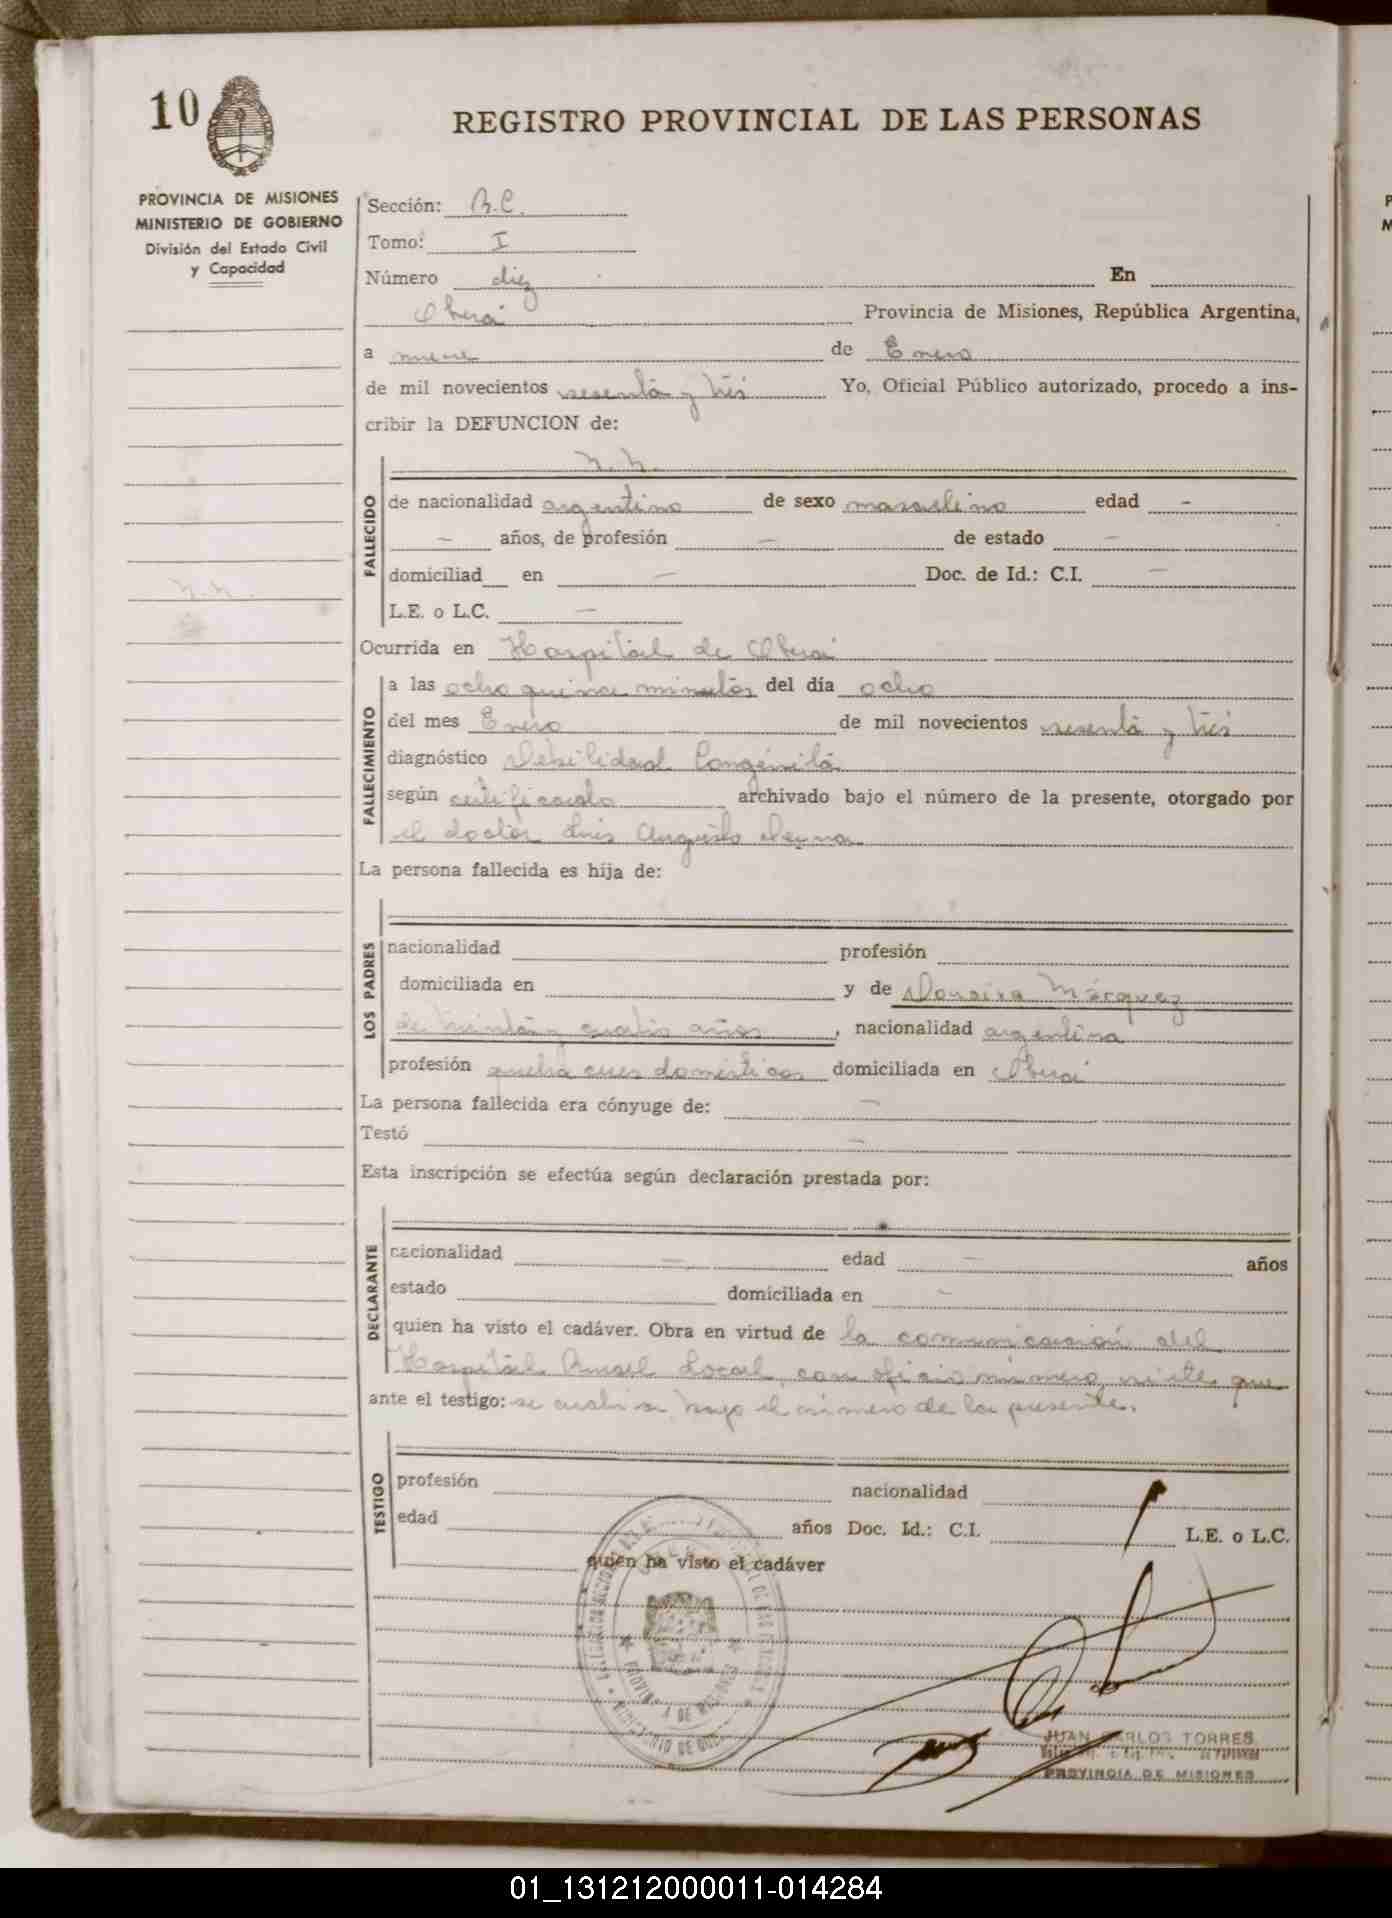 10
REGISTRO PROVINCIAL DE LAS PERSONAS
PROVINCIA DE MISIONES
MINISTERIO DE GOBIERNO
División del Estado Civil
y Capacidad
Sección: R.C.
Tomo: I
Número diez En
Oberá Provincia de Misiones, República Argentina,
a nueve de Enero
de mil novecientos sesenta y tres Yo, Oficial Público autorizado, procedo a ins-
cribir la DEFUNCION de:
N.N.
FALLECIDO
de nacionalidad argentino de sexo masculino edad -
- años, de profesión - de estado -
domiciliad en - Doc. de Id.: C.I. -
N.N.
L.E. o L.C. -
Ocurrida en Hospital de Oberá
FALLECIMIENTO
a las ocho quince minutos del día ocho
del mes Enero de mil novecientos sesenta y tres
diagnóstico Debilidad Congénita
según certificado archivado bajo el número de la presente, otorgado por
el doctor Luis Augusto
La persona fallecida es hija de:
LOS PADRES
nacionalidad profesión
domiciliada en y de Márquez
de treinta y cuatro años, nacionalidad argentina
profesión domésticos domiciliada en Oberá
La persona fallecida era cónyuge de: -
Testó -
Esta inscripción se efectúa según declaración prestada por:
DECLARANTE
nacionalidad - edad - años
estado domiciliada en -
quien ha visto el cadáver. Obra en virtud de la comunicación del
Hospital Rural Local, con oficio número siete que
ante el testigo: se archiva bajo el número de la presente.
TESTIGO
profesión nacionalidad
edad años Doc. Id.: C.I. L.E. o L.C.
quien ha visto el cadáver
JUAN CARLOS TORRES
PROVINCIA DE MISIONES
01_131212000011-014284